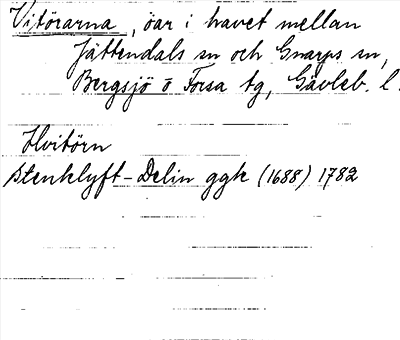 Vitörarna, öar i havet mellan
Jättendals sn och Gnarps sn,
Bergsjö o Forsa tg, Gävleb. l.
Hvitörn
Stenklyft-Delin ggk (1688) 1782